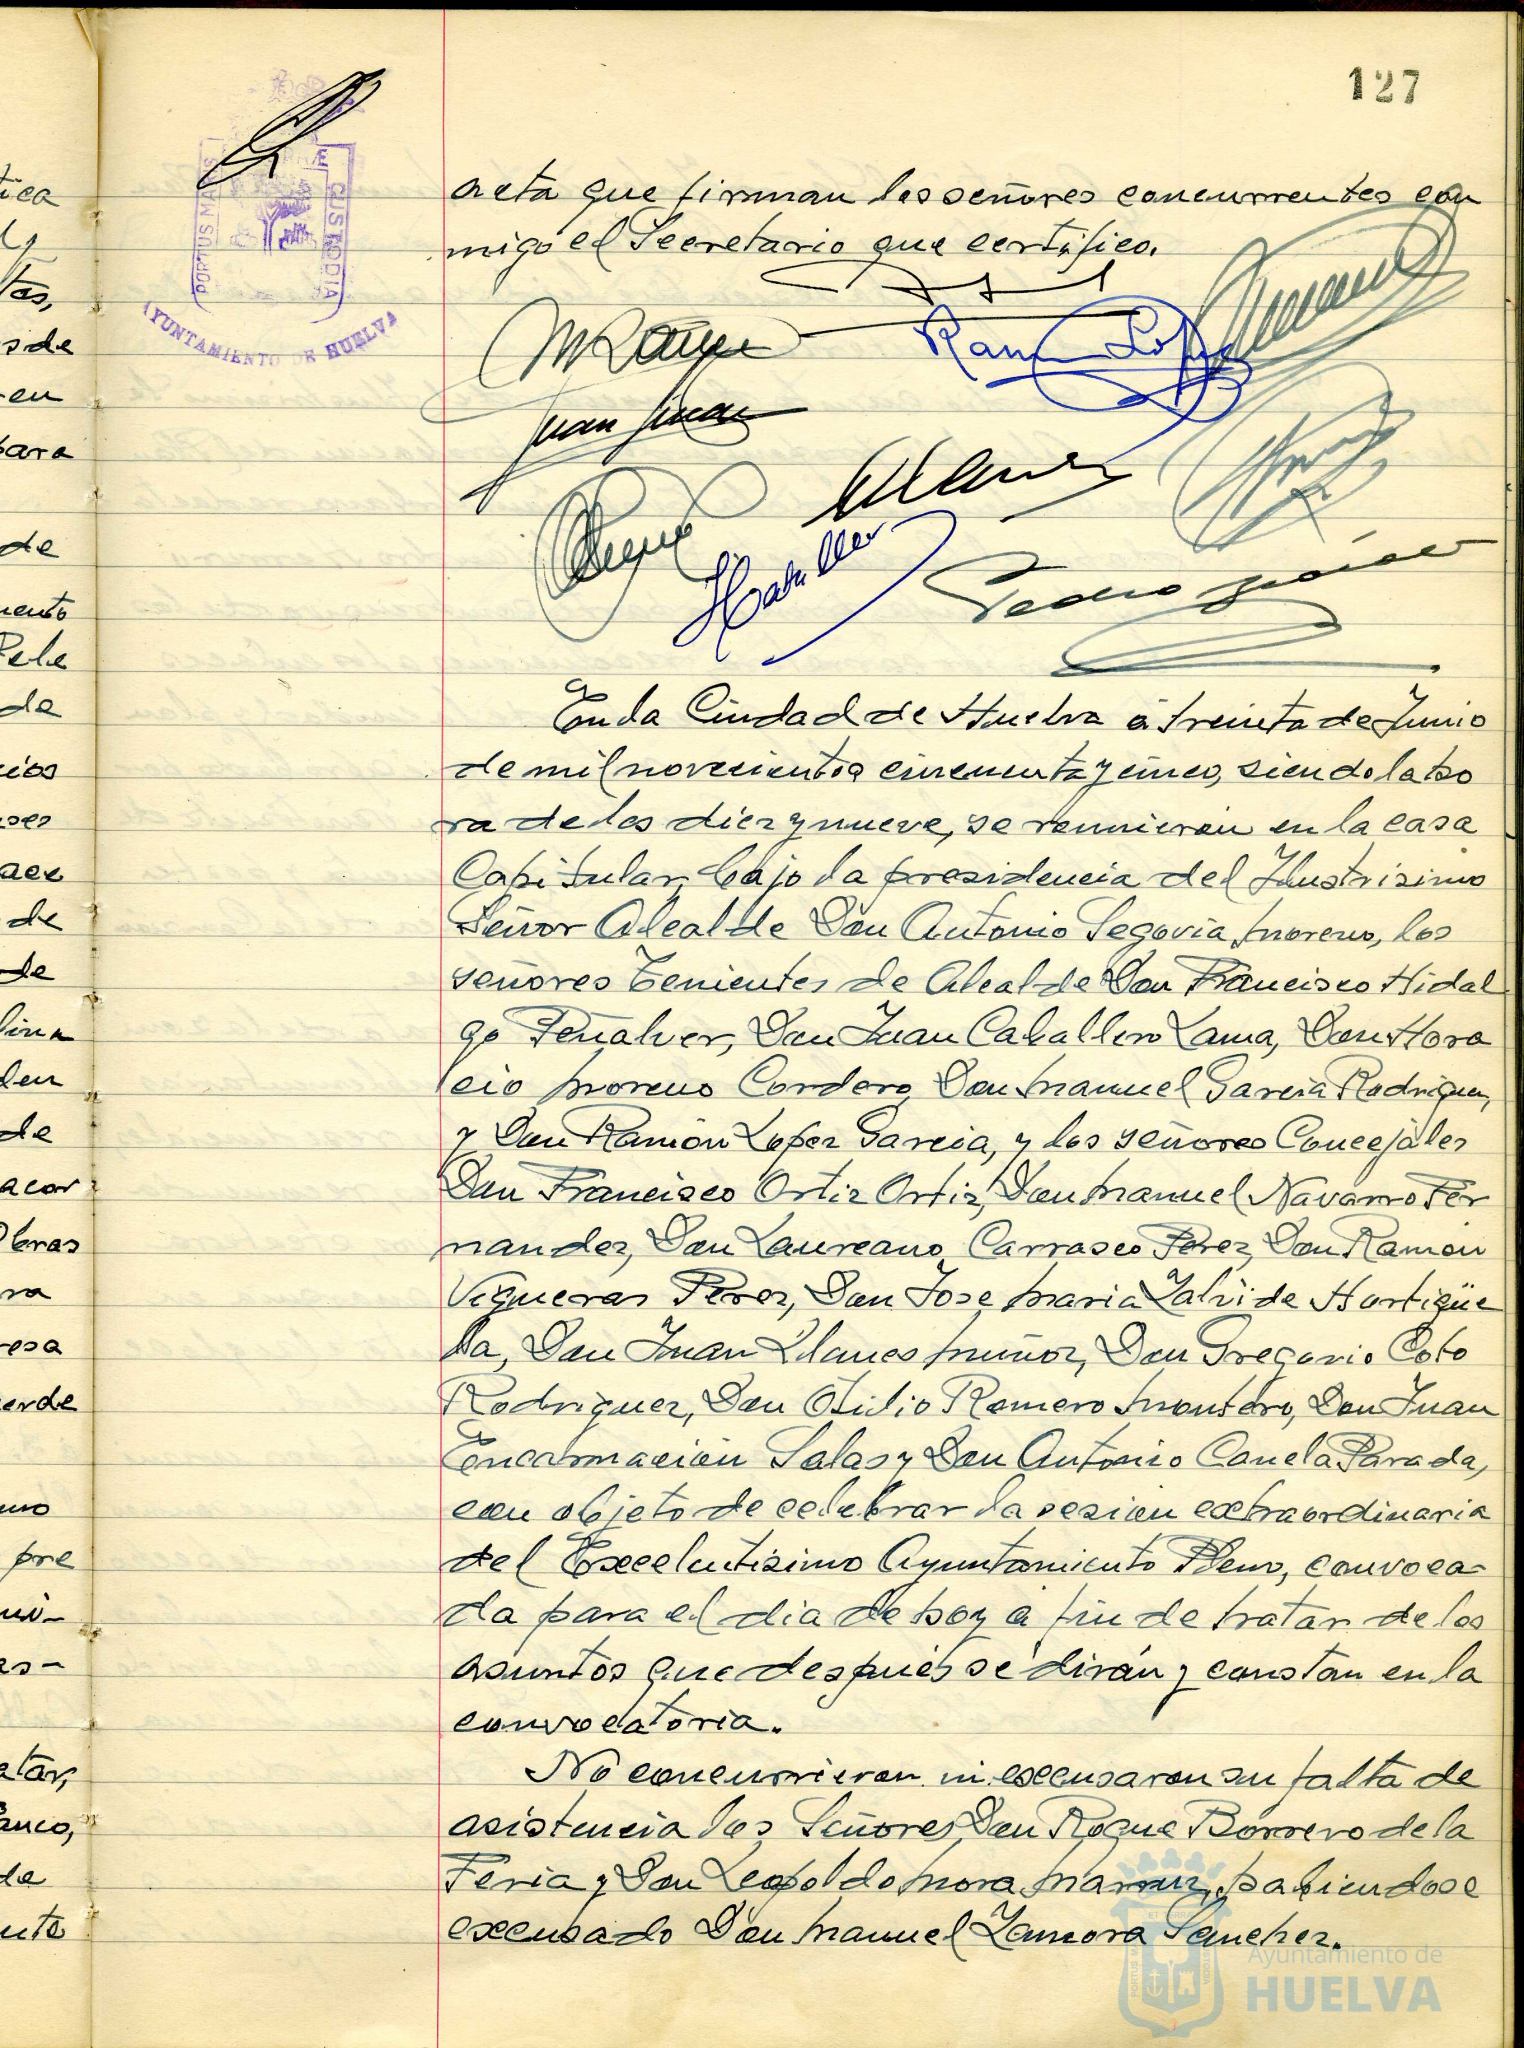 127
PORTUS MARIS
CUSTODIA
AYUNTAMIENTO DE HUELVA
acta que firman los señores concurrentes con
migo el Secretario que certifico.
Ramon Lopez
Juan
Pedro
En la Ciudad de Huelva á treinta de Junio
de mil novecientos cincuenta y cinco, siendo la ho
ra de las diez y nueve, se reunieron en la casa
Capitular, bajo la presidencia del Ilustrisimo
Señor Alcalde Don Antonio Segovia Moreno, los
señores Tenientes de Alcalde Don Francisco Hidal
go Peñalver, Don Juan Caballero Lama, Don Hora
cio Moreno Cordero, Don Manuel Garcia Rodriguez,
y Don Ramón Lopez Garcia, y los señores Concejales
Don Francisco Ortiz Ortiz, Don Manuel Navarro Fer
nandez, Don Laureano Carrasco Perez, Don Ramón
Vigueras Perez, Don Jose Maria Zalvide Hortigüe
la, Don Juan Llanes Muñoz, Don Gregorio Coto
Rodriguez, Don Otilio Romero Montero, Don Juan
Encarnación Salas y Don Antonio Canela Parada,
con objeto de celebrar la sesión extraordinaria
del Excelentisimo Ayuntamiento Pleno, convoca-
da para el dia de hoy a fin de tratar de los
asuntos que después se dirán y constan en la
convocatoria.
No concurrieron ni excusaron su falta de
asistencia los Señores Don Roque Borrero de la
Feria y Don Leopoldo Mora habiendose
excusado Don Manuel Zamora Sanchez.
Ayuntamiento de
HUELVA
tica
tas,
de
en
para
de
de
de
de
de
de
Obras
ra
pre
as-
de